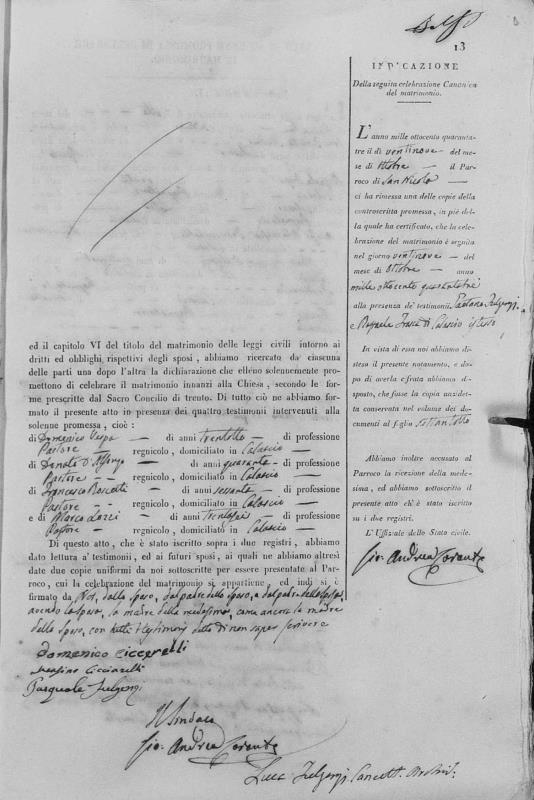 13
ed il capitolo VI del titolo del matrimonio delle leggi civili intorno ai
dritti ed obblighi rispettivi degli sposi, abbiamo ricercato da ciascuna
delle parti una dopo l'altra la dichiarazione che elleno solennemente pro-
mettono di celebrare il matrimonio innanzi alla Chiesa, secondo le for-
me prescritte dal Sacro Concilio di trento. Di tutto ciò ne abbiamo for-
mato il presente atto in presenza dei quattro testimonii intervenuti alla
solenne promessa, cioè :
di Domenico Vespa — di anni trentotto — di professione
Pastore — regnicolo, domiciliato in Calascio —
di Donato D'Alfonzo — di anni quaranta — di professione
Pastore — regnicolo, domiciliato in Calascio —
di Francesco — di anni sessanta — di professione
Pastore — regnicolo, domiciliato in Calascio —
e di Marco — di anni trentasei — di professione
Pastore — regnicolo, domiciliato in Calascio —
Di questo atto, ch'è stato iscritto sopra i due registri, abbiamo
dato lettura a' testimonii, ed ai futuri sposi, ai quali ne abbiamo altresì
date due copie uniformi da noi sottoscritte per essere presentate al Par-
roco, cui la celebrazione del matrimonio si appartiene, ed indi si è
firmato da Noi, dallo sposo, dal padre dello sposo, e dal padre della sposa,
avendo la sposa, la madre della medesima, come ancora la madre
dello sposo, con tutti i testimonj detto di non saper scrivere
Domenico Ciccarelli
Ciccarelli
Pasquale Fulgenzi
Il Sindaco
Gio. Andrea
Luca Fulgenzi Cancell.
INDICAZIONE
Della seguita celebrazione Canonica
del matrimonio.
L'anno mille ottocento quaranta-
tre il dì ventinove — del me-
se di Ottobre — il Par-
roco di San Nicola —
ci ha rimessa una delle copie della
controscritta promessa, in piè del-
la quale ha certificato, che la cele-
brazione del matrimonio è seguita
nel giorno ventinove — del
mese di Ottobre — anno
mille ottocento quarantatre
alla presenza de' testimonii Gaetano Fulgenzi
e Raffaele di Calascio istesso
In vista di essa noi abbiamo di-
steso il presente notamento, e do-
po di averla cifrata abbiamo di-
sposto, che fusse la copia anzidet-
ta conservata nel volume dei do-
cumenti al foglio settantotto
Abbiamo inoltre accusato al
Parroco la ricezione della mede-
sima, ed abbiamo sottoscritto il
presente atto ch'è stato iscritto
su i due registri.
L'Uffiziale dello Stato civile.
Gio. Andrea